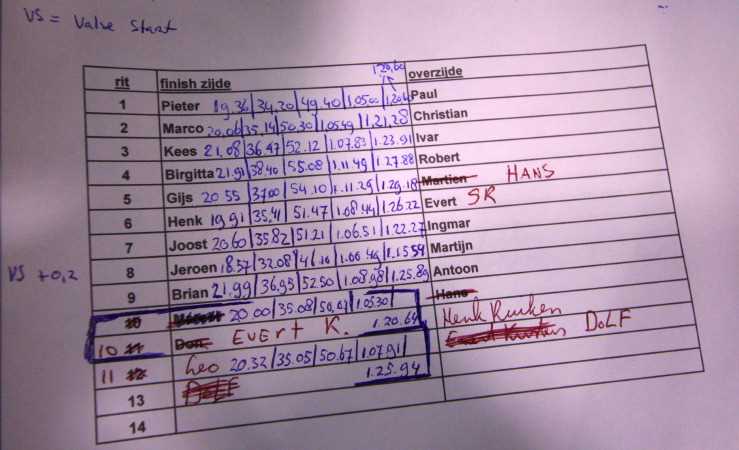 VS = Valse Start
1.20,60
rit finish zijde overzijde
1 Pieter 19,36 | 34.20 | 49.40 | 1.05.00 | 1.20.60 Paul
2 Marco 20,06 | 35,14 | 50.30 | 1.05.49 | 1.21.28 Christian
3 Kees 21.08 | 36.47 | 52.12 | 1.07.83 | 1.23.91 Ivar
4 Birgitta 21.91 | 38.40 | 55.08 | 1.11.49 | 1.27.88 Robert
5 Gijs 20 55 | 37.00 | 54.10 | 1.11.29 | 1.29.18 Martien HANS
6 Henk 19,91 | 35,41 | 51.47 | 1.08.44 | 1.26.22 Evert SR
7 Joost 20.60 | 35.82 | 51.21 | 1.06.51 | 1.22.27 Ingmar
VS +0,2 8 Jeroen 18.57 | 32.08 | 46.16 | 1.00.49 | 1.15.59 Martijn
9 Brian 21.99 | 36,95 | 52.50 | 1.08.98 | 1.25.89 Antoon
10 20.00 | 35.08 | 50,61 | 1.05.30 Hans
10 11 Don EVERT K. 1.20.64 Henk
11 12 Leo 20.32 | 35.05 | 50.67 | 1.07.91 DOLF
13 DOLF 1.25.94
14